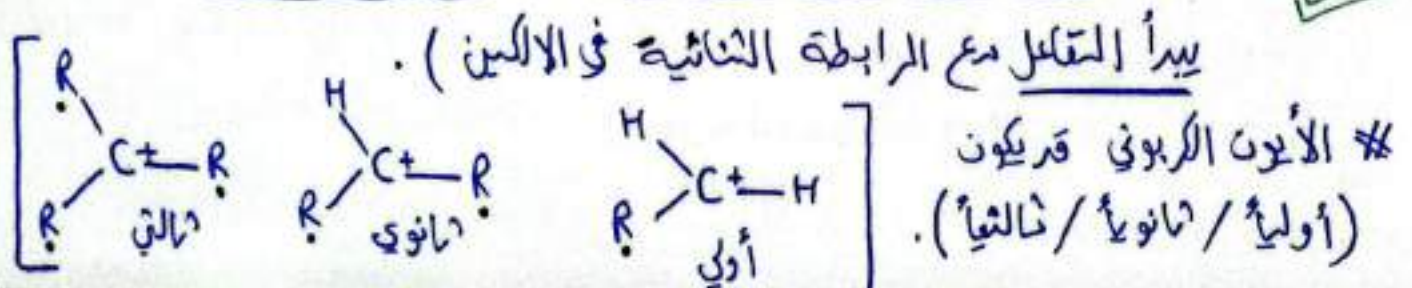 يبدأ التفاعل مع الرابطة الثنائية في الالكين ) .
# الأيون الكربوني قد يكون
(أولياً / ثانوياً / ثالثياً).
H
C+ H
R
أولي
H
C+ R
R
ثانوي
R
C+ R
R
ثالثي